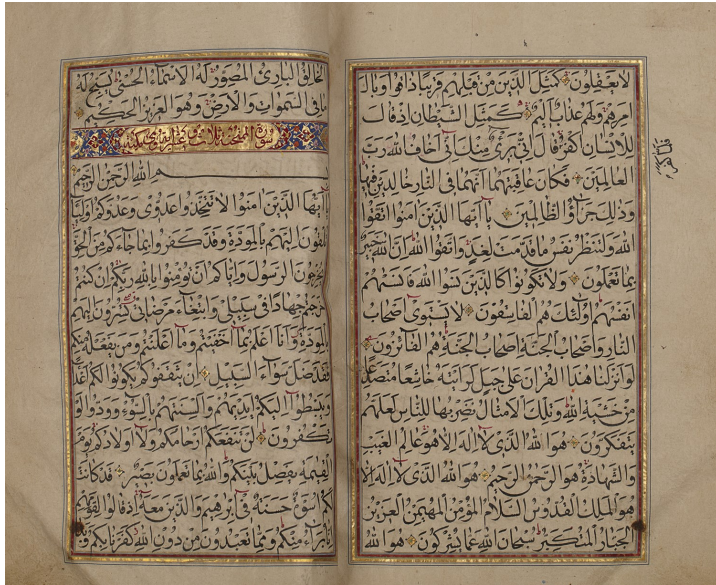 لا يعقلون كمثل الذين من قبلهم قريبا ذاقوا وبال
امرهم ولهم عذاب اليم كمثل الشيطان اذ قال
للانسان اكفر قال اني برئ منك اني اخاف الله رب
فلما كفر
العالمين فكان عاقبتهما انهما في النار خالدين فيها
وذلك جزاؤ الظالمين يا ايها الذين امنوا اتقوا
الله ولتنظر نفس ما قدمت لغد واتقوا الله ان الله خبير
بما تعملون ولا تكونوا كالذين نسوا الله فانسهم
انفسهم اولئك هم الفاسقون لا يستوى اصحاب
النار واصحاب الجنة اصحاب الجنة هم الفائزون
لو انزلنا هذا القران على جبل لرايته خاشعا متصدعا
من خشية الله وتلك الامثال نضربها للناس لعلهم
يتفكرون هو الله الذي لا اله الا هو عالم الغيب
والشهادة هو الرحمن الرحيم هو الله الذي لا اله الا
هو الملك القدوس السلام المؤمن المهيمن العزيز
الجبار المتكبر سبحان الله عما يشركون هو الله
الخالق البارئ المصور له الاسماء الحسنى يسبح له
ما في السموات والارض وهو العزيز الحكيم
سورة الممتحنة ثلاث عشر اية
بسم الله الرحمن الرحيم
يا ايها الذين امنوا لا تتخذوا عدوى وعدوكم اولياء
تلقون اليهم بالمودة وقد كفروا بما جاءكم من الحق
يخرجون الرسول واياكم ان تؤمنوا بالله ربكم ان كنتم
خرجتم جهادا في سبيلي وابتغاء مرضاتي تسرون اليهم
بالمودة وانا اعلم بما اخفيتم وما اعلنتم ومن يفعله منكم
فقد ضل سواء السبيل ان يثقفوكم يكونوا لكم اعداء
ويبسطوا اليكم ايديهم والسنتهم بالسوء وودوا لو
تكفرون لن تنفعكم ارحامكم ولا اولادكم يوم
القيمة يفصل بينكم والله بما تعملون بصير قد كانت
لكم اسوة حسنة في ابرهيم والذين معه اذ قالوا لقومهم
انا براء منكم ومما تعبدون من دون الله كفرنا بكم وبدا